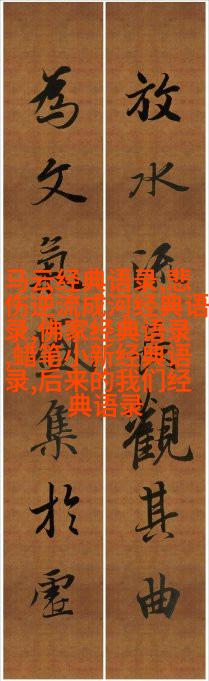 放水流觀其曲
為文氣盛集於虛
马云经典语录,悲
伤逆流成河经典语
录,佛家经典语录
,蜡笔小新经典语
录,后来的我们经
典语录